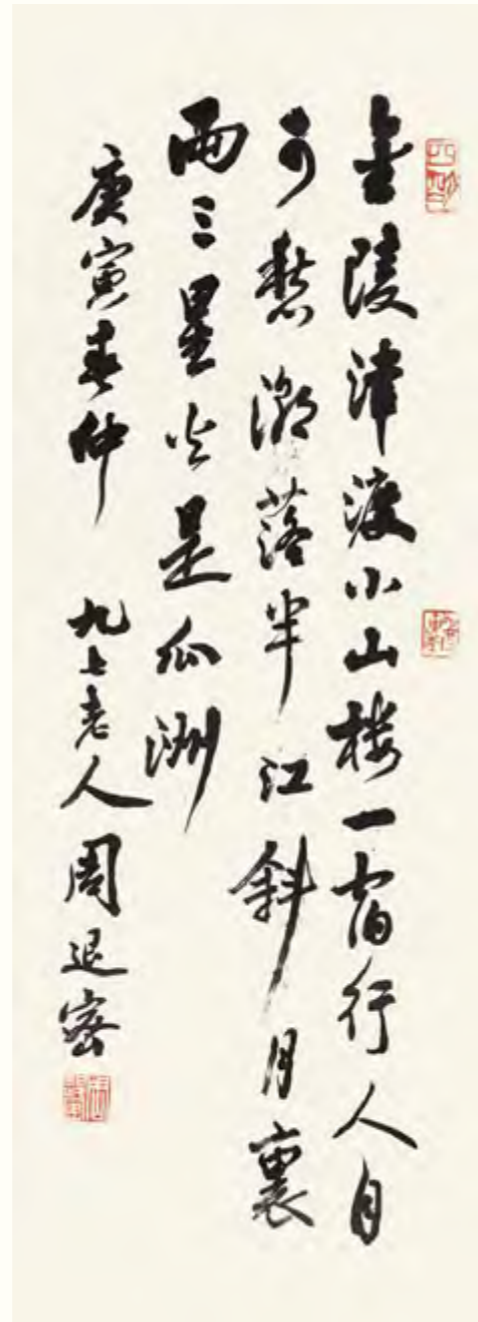 金陵津渡小山楼一宿行人自
可愁潮落半江斜月裏
两三星火是瓜洲
庚寅春仲 九七老人周退密